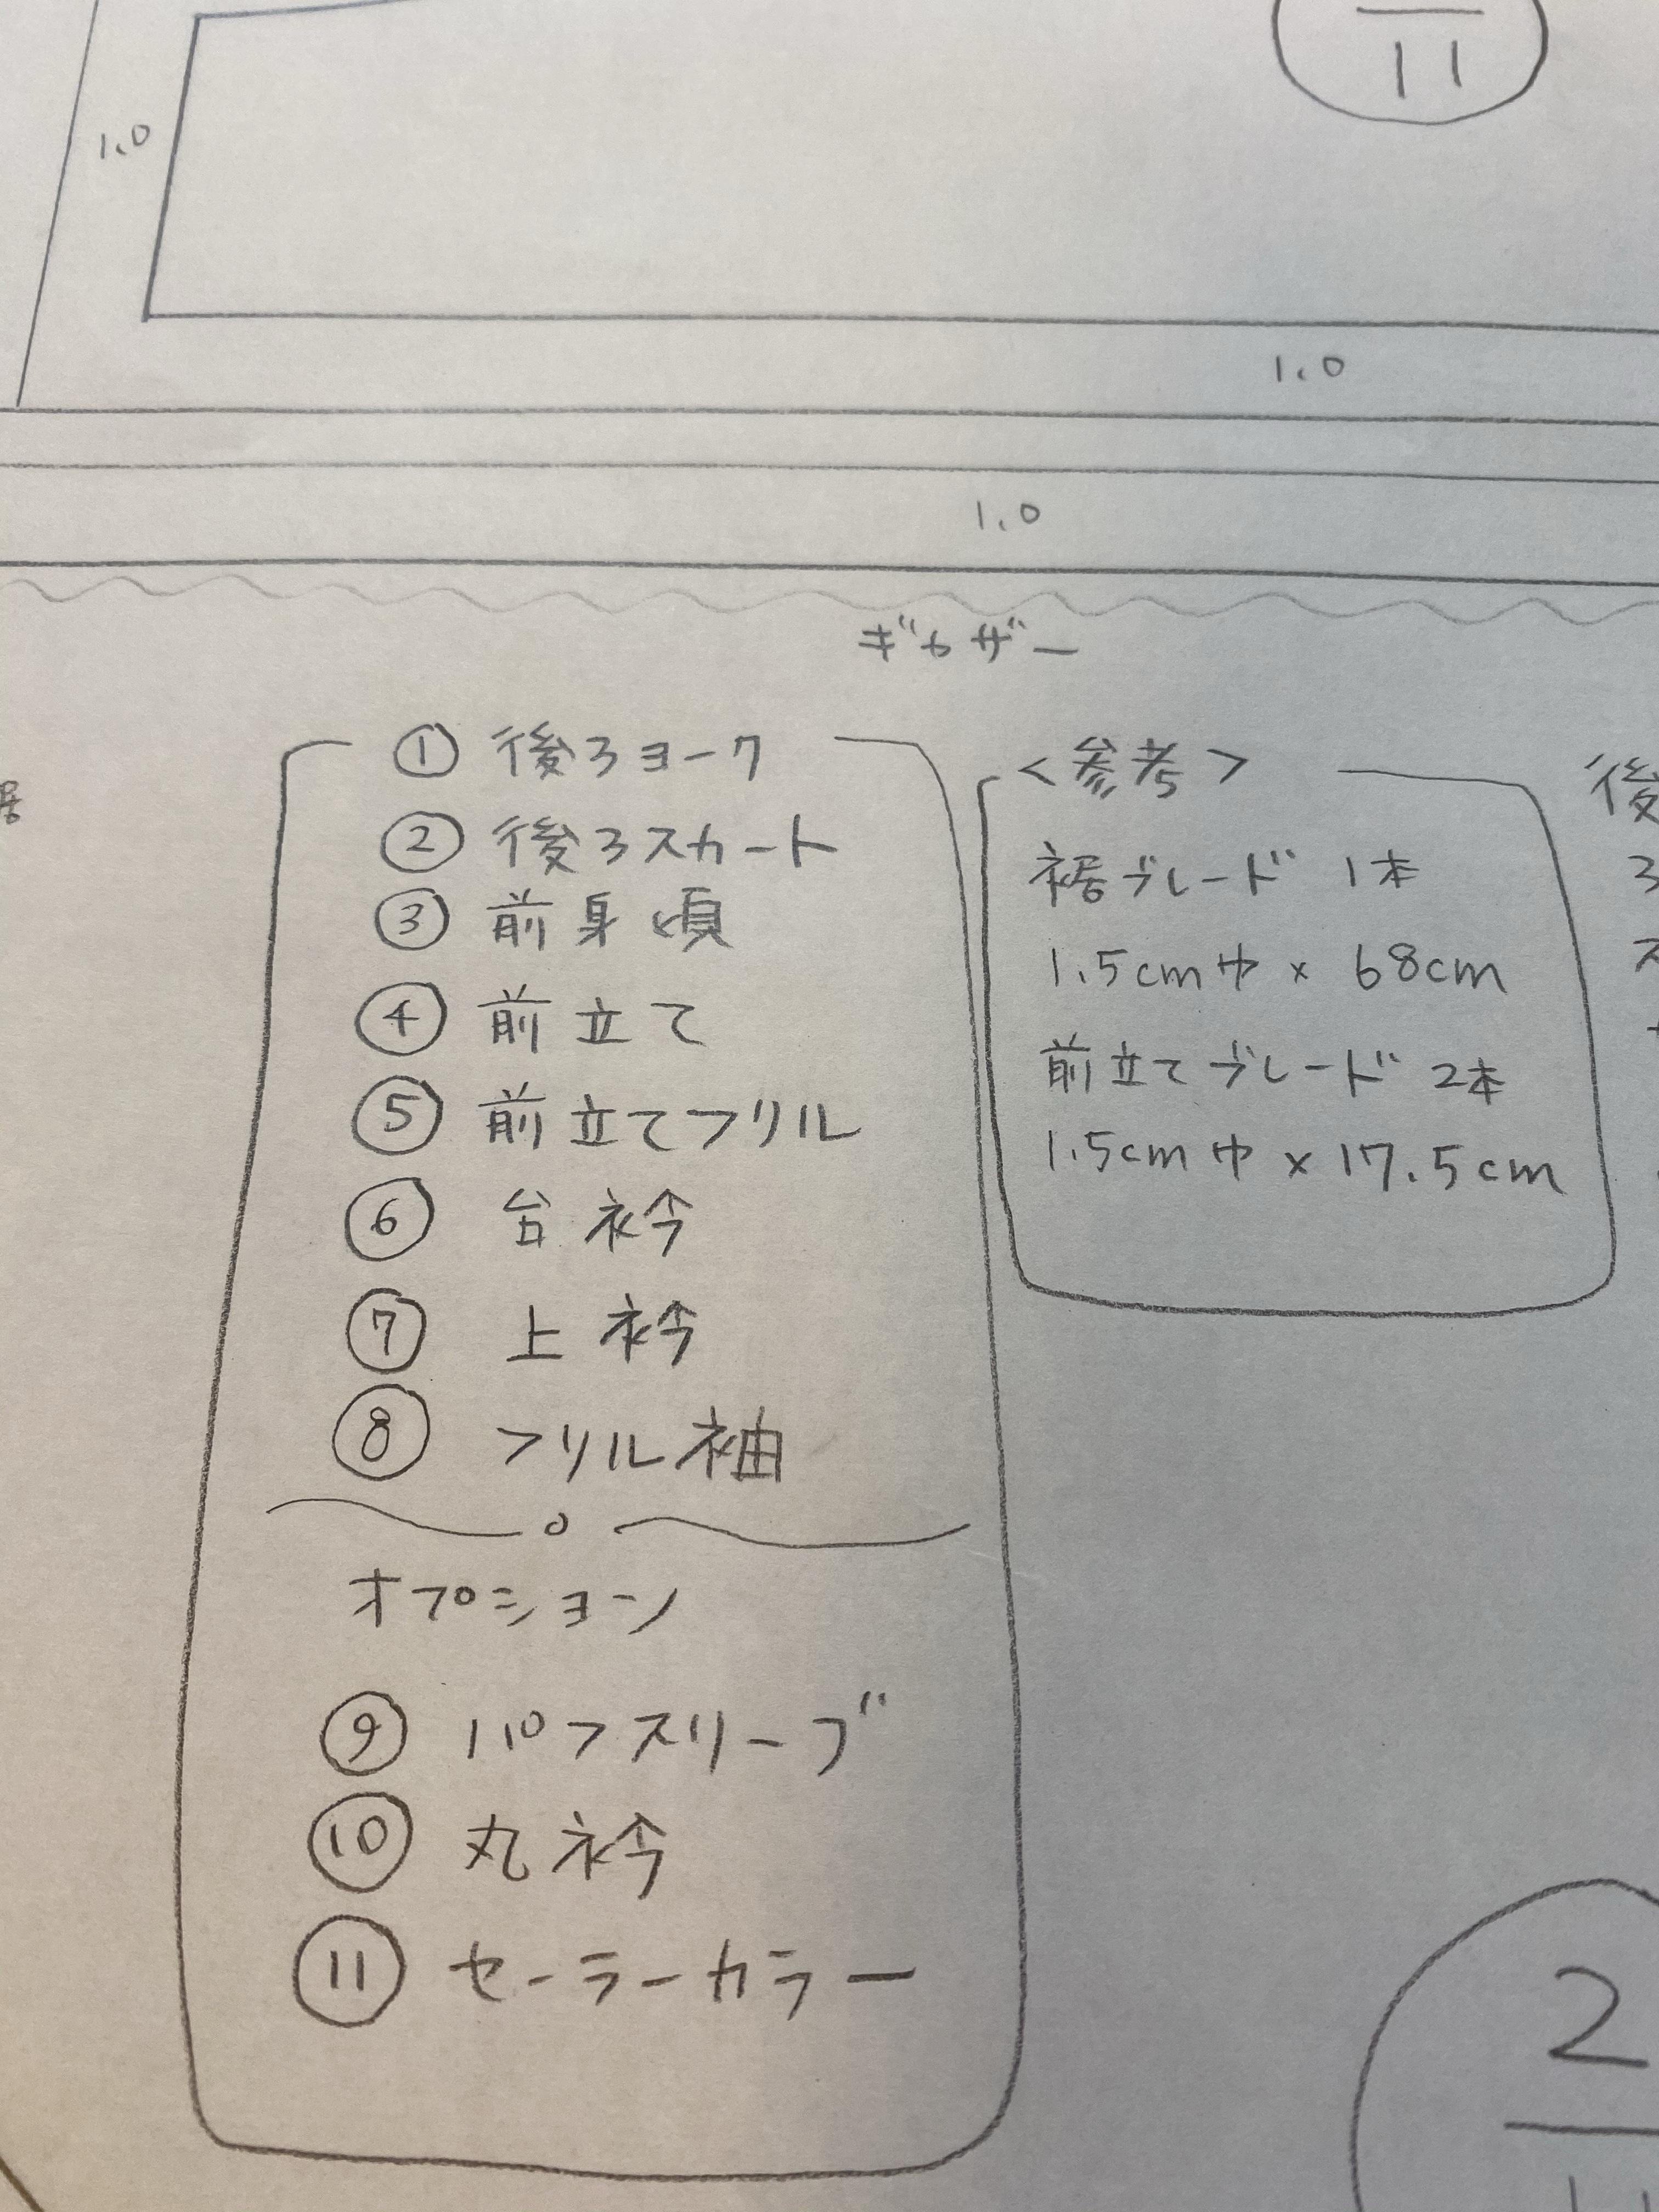 11
1.0
1.0
1.0
ギャザー
① 後ろヨーク
② 後ろスカート
③ 前身頃
④ 前立て
⑤ 前立てフリル
⑥ 台衿
⑦ 上衿
⑧ フリル袖
オプション
⑨ パフスリーブ
⑩ 丸衿
⑪ セーラーカラー
<参考>
裾ブレード 1本
1.5cm巾 × 68cm
前立てブレード 2本
1.5cm巾 × 17.5cm
後
ろ
ス
2